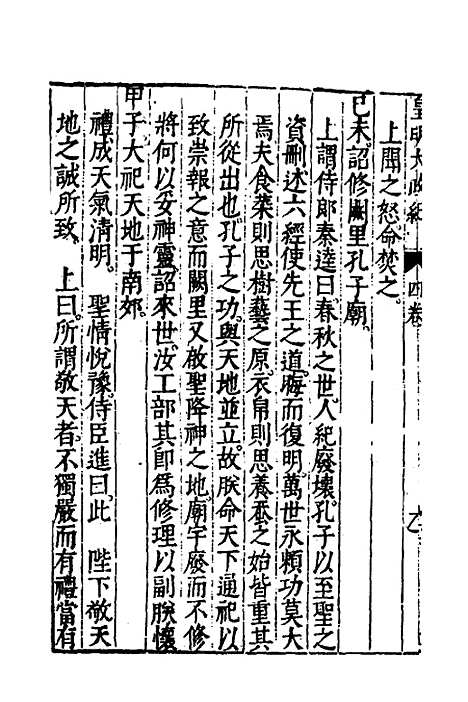 皇明大政紀 四卷
上聞之怒命焚之。
己未。詔修闕里孔子廟。
上謂侍郎秦逵曰。春秋之世。人紀廢壞。孔子以至聖之
資刪述六經使先王之道。晦而復明。萬世永賴功莫大
焉夫食粟則思樹藝之原。衣帛則思養蚕之始皆重其
所從出也。孔子之功。與天地並立。故朕命天下通祀以
致崇報之意而闕里又啟聖降神之地。廟宇廢而不修
將何以妥神靈。詔來世。汝工部其即爲修理以副朕懷
甲子大祀天地于南郊。
禮成天氣清明。 聖情悅豫。侍臣進曰。此 陛下敬天
地之誠所致。 上曰。所謂敬天者。不獨嚴而有禮當有